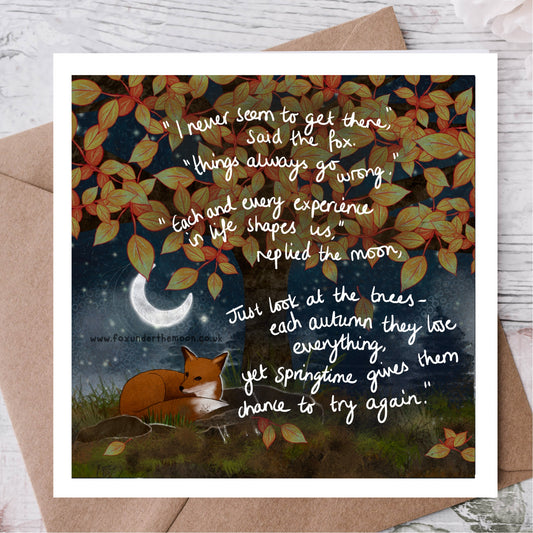 "I never seem to get there,"
said the fox.
"things always go
wrong."
"Each and every experience
in life shapes us,"
replied the moon,
Just look at the trees-
each autumn they lose
everything,
yet springtime gives them
chance to try again."
www.foxunderthemoon.co.uk